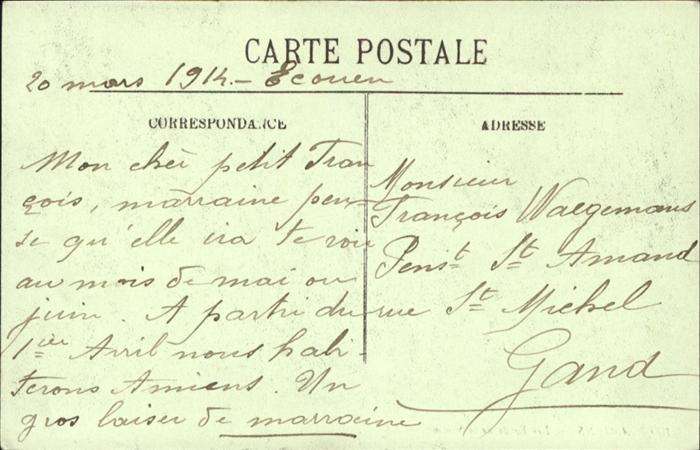 CARTE POSTALE
20 mars 1914 - Ecouen
CORRESPONDANCE
Mon cher petit Fran
çois, marraine pen
se qu'elle ira te voir
au mois de mai ou
juin. A partir du
1ier Avril nous habi-
terons Amiens. Un
gros baiser de marraine
ADRESSE
Monsieur
François Waegemans
Penst St Amand
rue St Michel
Gand